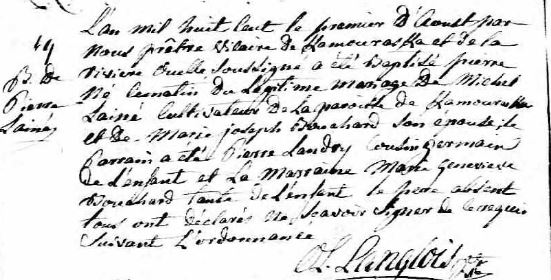 L'an mil huit Cent le premier D'Aoust par
19
Nous prêtre Vicaire De Kamouraska et de la
B. De
Riviere Ouelle Soussigné a été Baptisé pierre
Pierre
Né le matin Du Légitime mariage De Michel
Lainé
Lainé Cultivateur De la paroisse de Kamouraska
et De Marie joseph Bouchard son epouse; le
Parrain a été Pierre Landry Cousin germain
De L'enfant et La Marraine Marie Genevieve
Bouchard tante de L'enfant le pere absent
tous ont déclarés ne scavoir signer de ce requis
Suivant L'ordonnance
Langlois Ptr